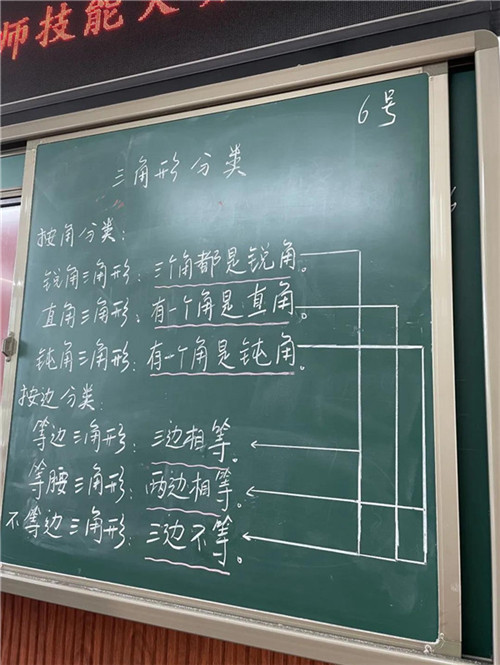 师技能大
6号
三角形分类
按角分类：
锐角三角形：三个角都是锐角。
直角三角形：有一个角是直角。
钝角三角形：有一个角是钝角。
按边分类：
等边三角形：三边相等。
等腰三角形：两边相等。
不等边三角形：三边不等。